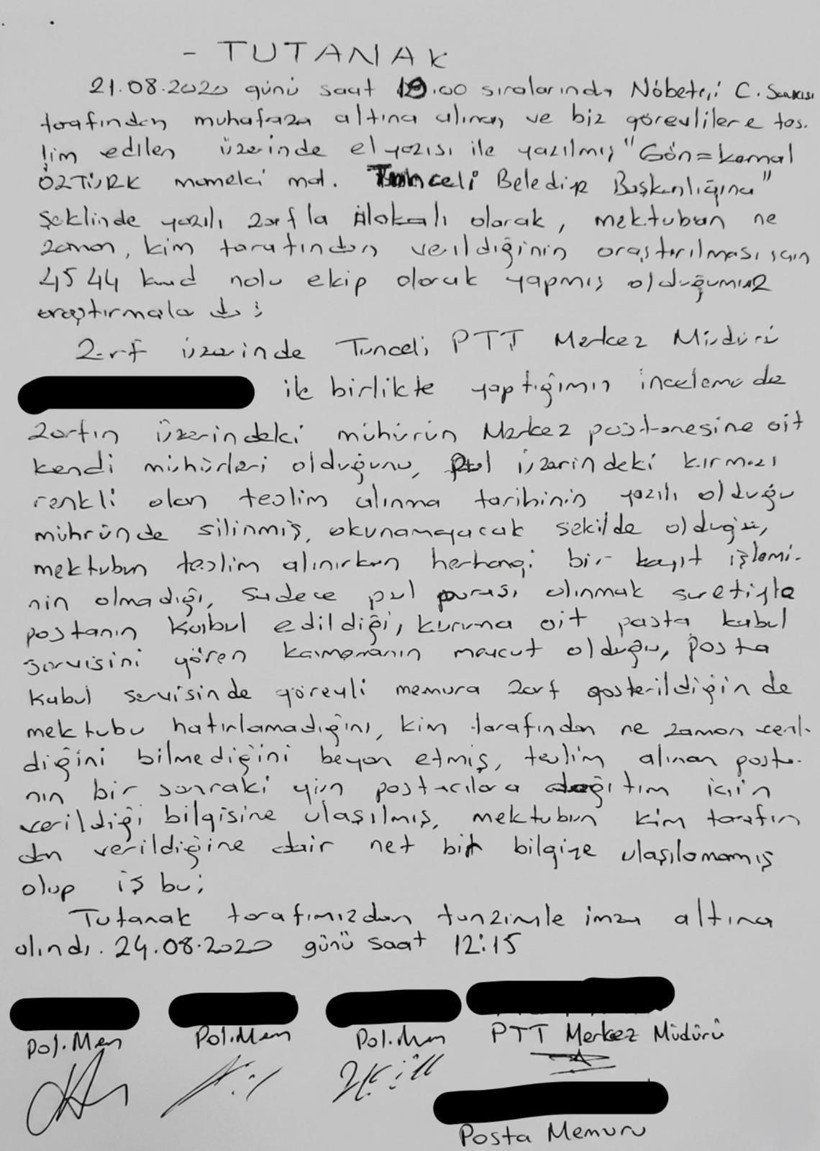 - TUTANAK
21.08.2020 günü saat 19.00 sıralarında Nöbetçi C. Savcısı
tarafından muhafaza altına alınan ve biz görevlilere tes-
lim edilen üzerinde elyazısı ile yazılmış "Gön=kemal
ÖZTÜRK mameki mah. Tunceli Belediye Başkanlığına"
şeklinde yazılı zarfla alakalı olarak, mektubun ne
zaman, kim tarafından verildiğinin araştırılması için
4544 kod nolu ekip olarak yapmış olduğumuz
araştırmalarda;
Zarf üzerinde Tunceli PTT Merkez Müdürü
ile birlikte yaptığımız incelemede
zarfın üzerindeki mühürün Merkez postanesine ait
kendi mühürleri olduğunu, pul üzerindeki kırmızı
renkli olan teslim alınma tarihinin yazılı olduğu
mühründe silinmiş, okunamayacak şekilde olduğu,
mektubun teslim alınırken herhangi bir kayıt işlemi-
nin olmadığı, sadece pul parası alınmak suretiyle
postanın kabul edildiği, kuruma ait posta kabul
servisini gören kameranın mevcut olduğu, posta
kabul servisinde görevli memura zarf gösterildiğinde
mektubu hatırlamadığını, kim tarafından ne zaman veril-
diğini bilmediğini beyan etmiş, teslim alınan posta-
nın bir sonraki gün postacılara dağıtım için
verildiği bilgisine ulaşılmış, mektubun kim tarafın
dan verildiğine dair net bir bilgiye ulaşılamamış
olup iş bu;
Tutanak tarafımızdan tanzimle imza altına
alındı. 24.08.2020 günü saat 12:15
Pol.Mem Pol.Mem Pol.Mem PTT Merkez Müdürü
Posta Memuru